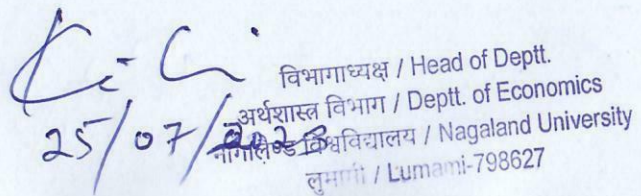 विभागाध्यक्ष / Head of Deptt.
अर्थशास्त्र विभाग / Deptt. of Economics
नागालैण्ड विश्वविद्यालय / Nagaland University
लुमामी / Lumami-798627
25/07/2023